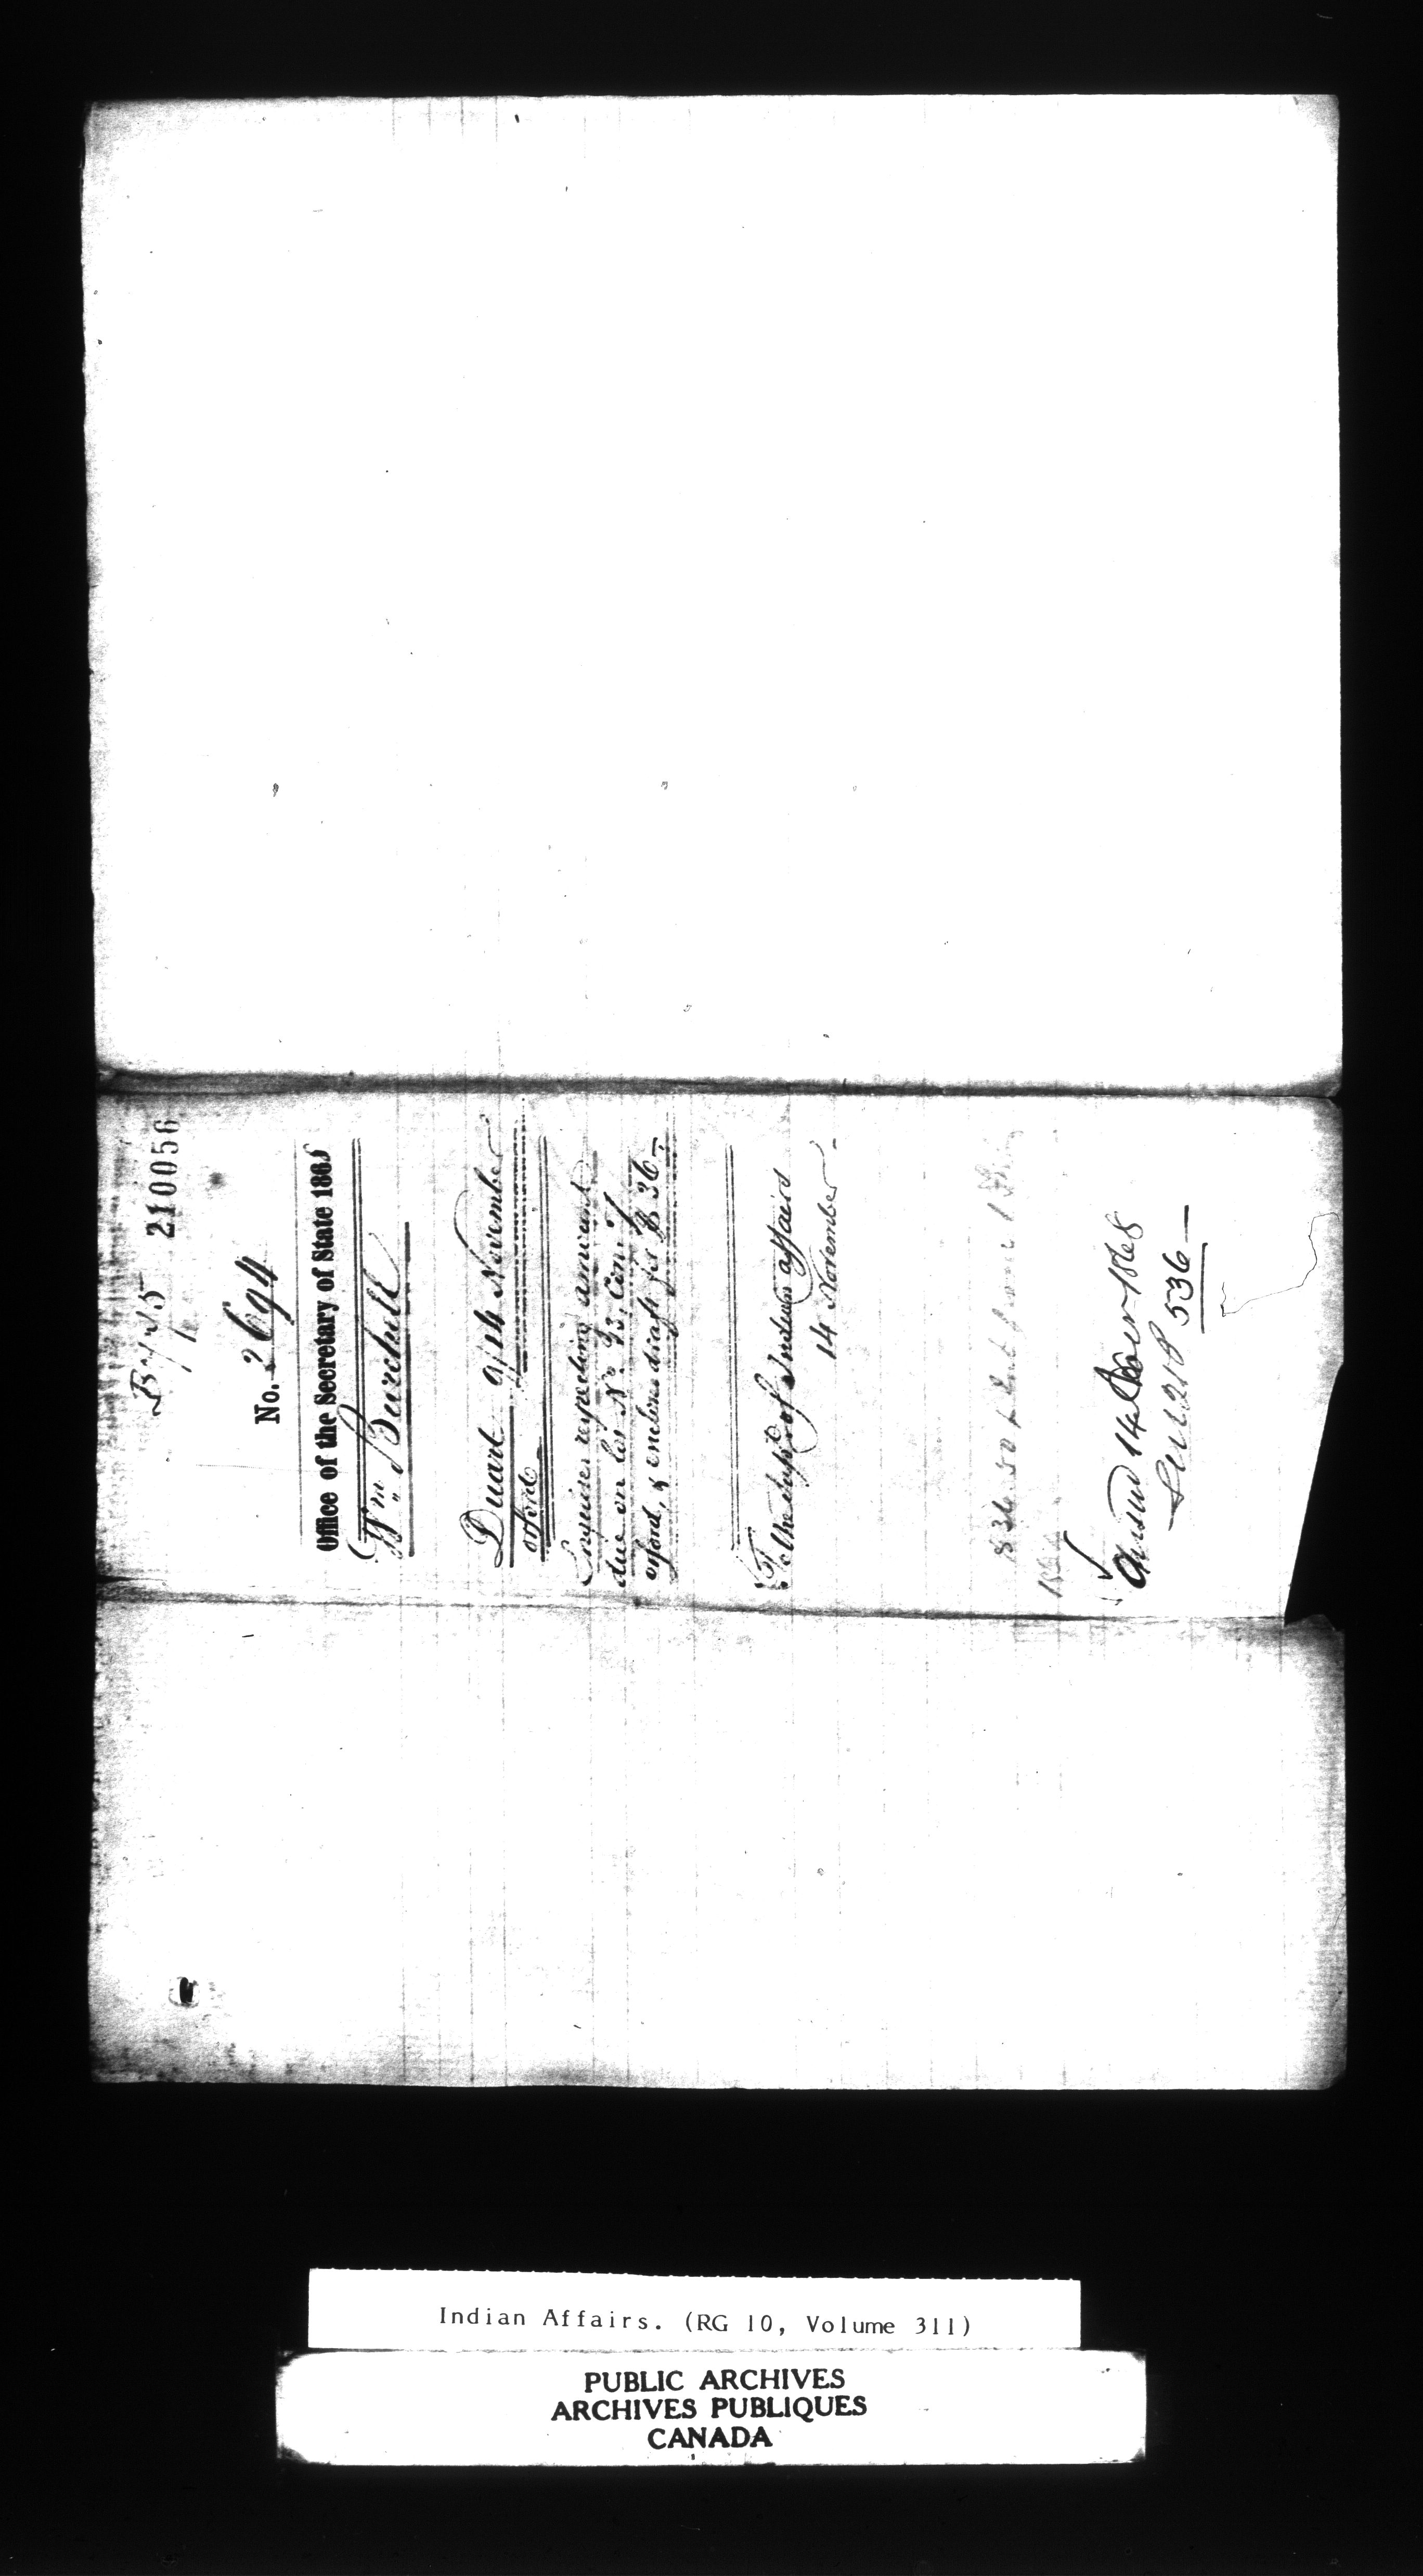 210056
No. 2694
Office of the Secretary of State 1868
Wm Burchill
Duart 9th November
orford
Enquires respecting amount
due on lot No 93, Con.
orford, & encloses draft for $36
To the Dept of Indian affairs
14 November
$36.50
Answd 14 1868
536
Indian Affairs. (RG 10, Volume 311)
PUBLIC ARCHIVES
ARCHIVES PUBLIQUES
CANADA